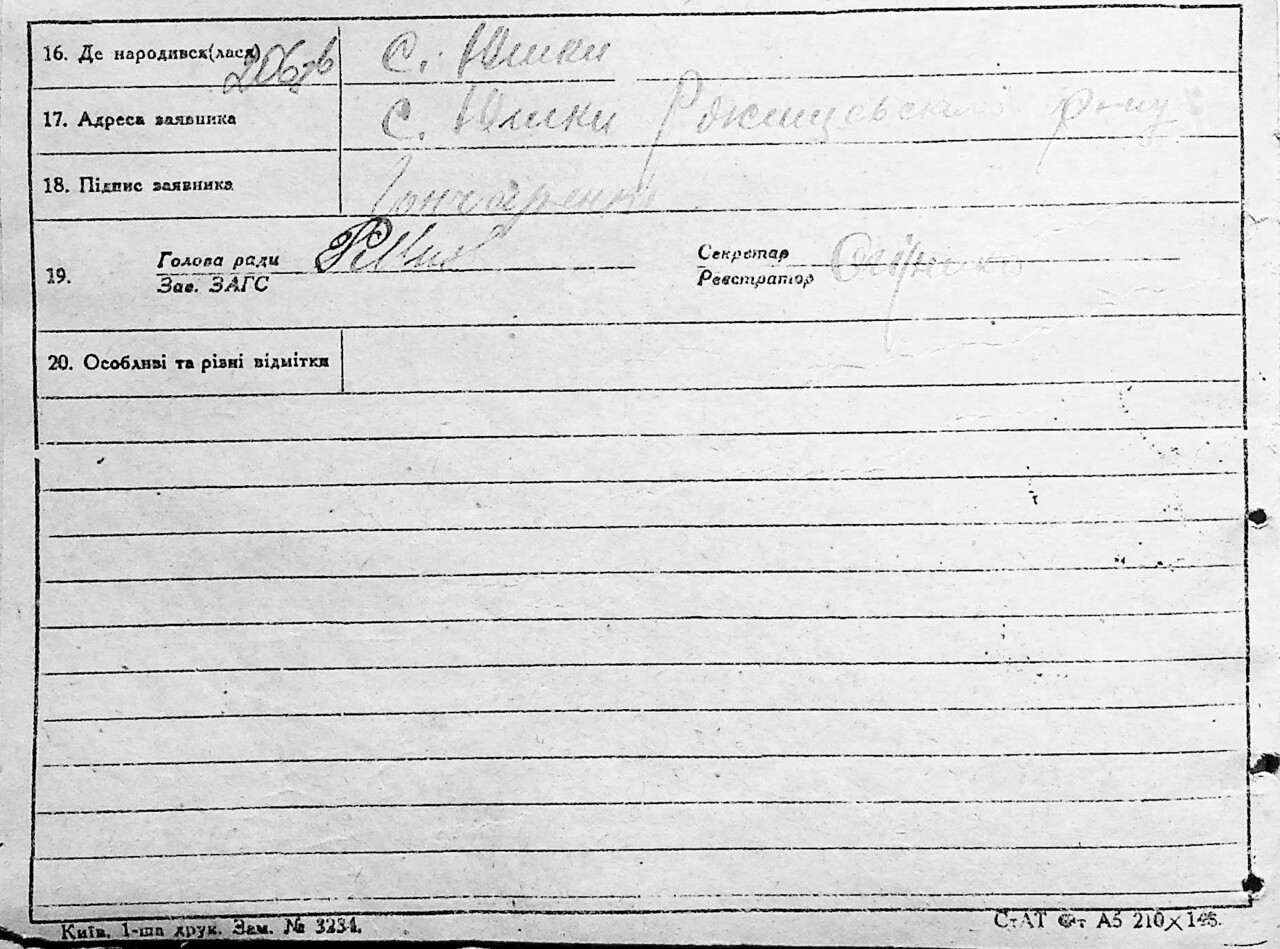 16. Де народився(лася) с. Юшки
17. Адреса заявника с. Юшки Ржищевского р-ну
18. Підпис заявника Гончаренко
19. Голова ради Секретар
Зав. ЗАГС Реєстратор
20. Особливі та різні відмітки
Київ. 1-ша друк. Зам. № 3234. СтАТ Фт А5 210×148.